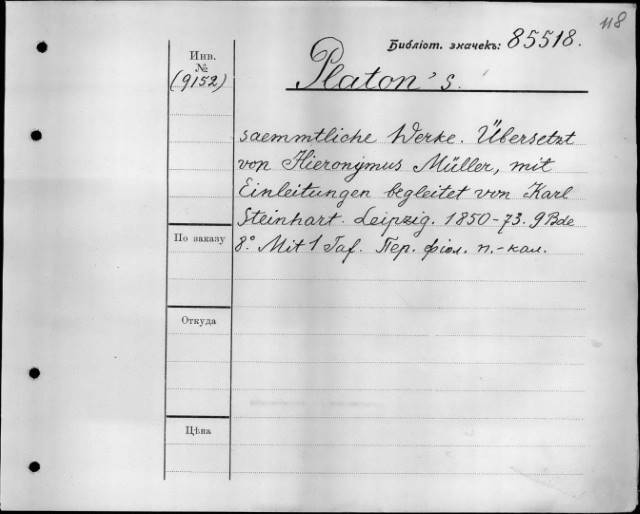 118
Библіот. значекъ: 85518.
Инв.
№
(9152)
Platon's.
saemmtliche Werke. Übersetzt
von Hieronymus Müller, mit
Einleitungen begleitet von Karl
Steinhart. Leipzig. 1850-73. 9 Bde
8.° Mit 1 Taf. Пер. фіол. п.-кал.
По заказу
Откуда
Цѣна